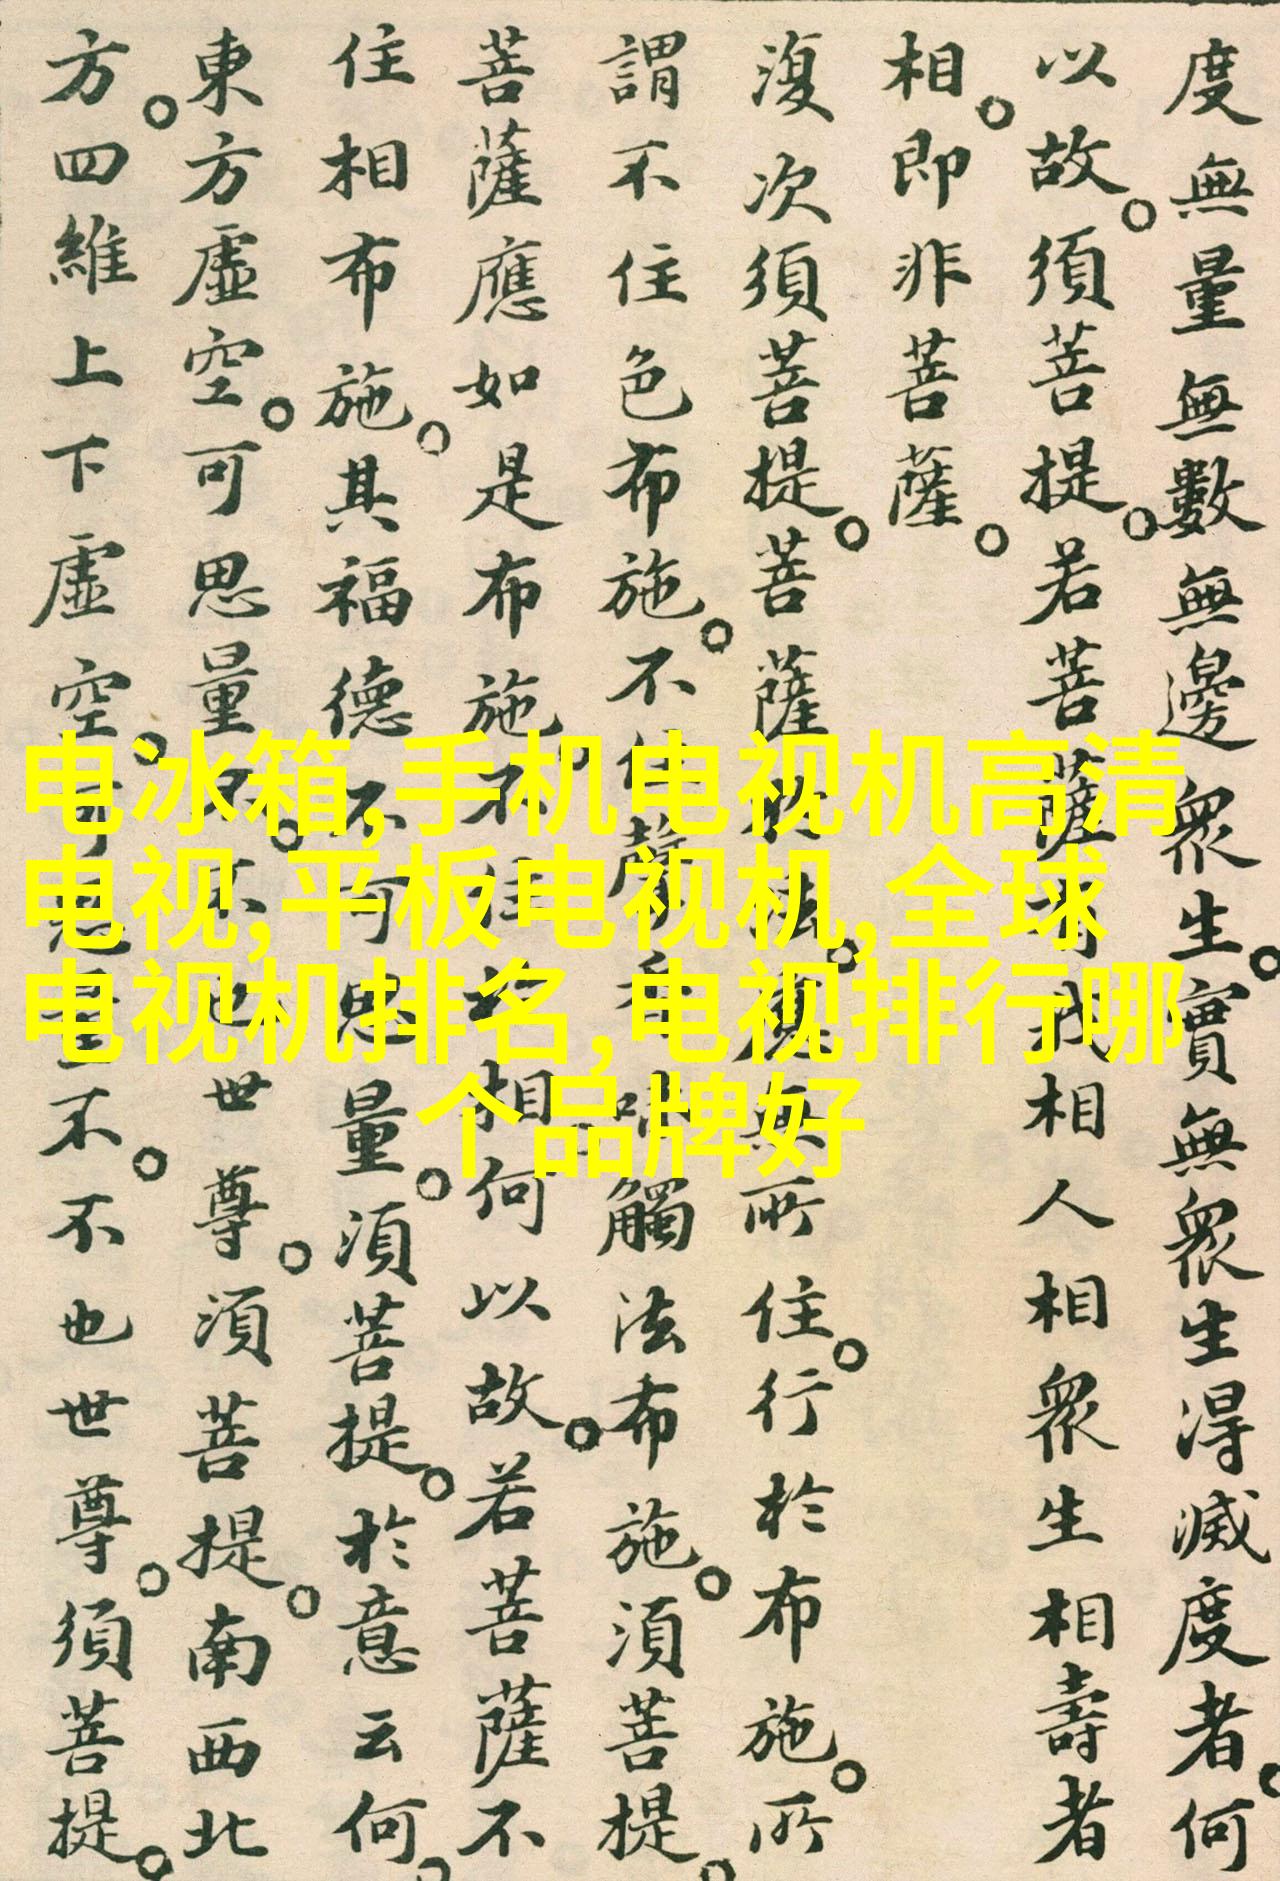 度無量無數無邊眾生。實無眾生得滅度者。何
以故。須菩提。若菩薩有我相人相眾生相壽者
相。即非菩薩。
復次須菩提。菩薩於法。應無所住。行於布施。所
謂不住色布施。不住聲香味觸法布施。須菩提。
菩薩應如是布施。不住於相。何以故。若菩薩不
住相布施。其福德不可思量。須菩提。於意云何。
東方虛空。可思量不。不也世尊。須菩提。南西北
方。四維上下虛空。可思量不。不也世尊。須菩提。
电冰箱,手机电视机高清
电视,平板电视机,全球
电视机排名,电视排行哪
个品牌好